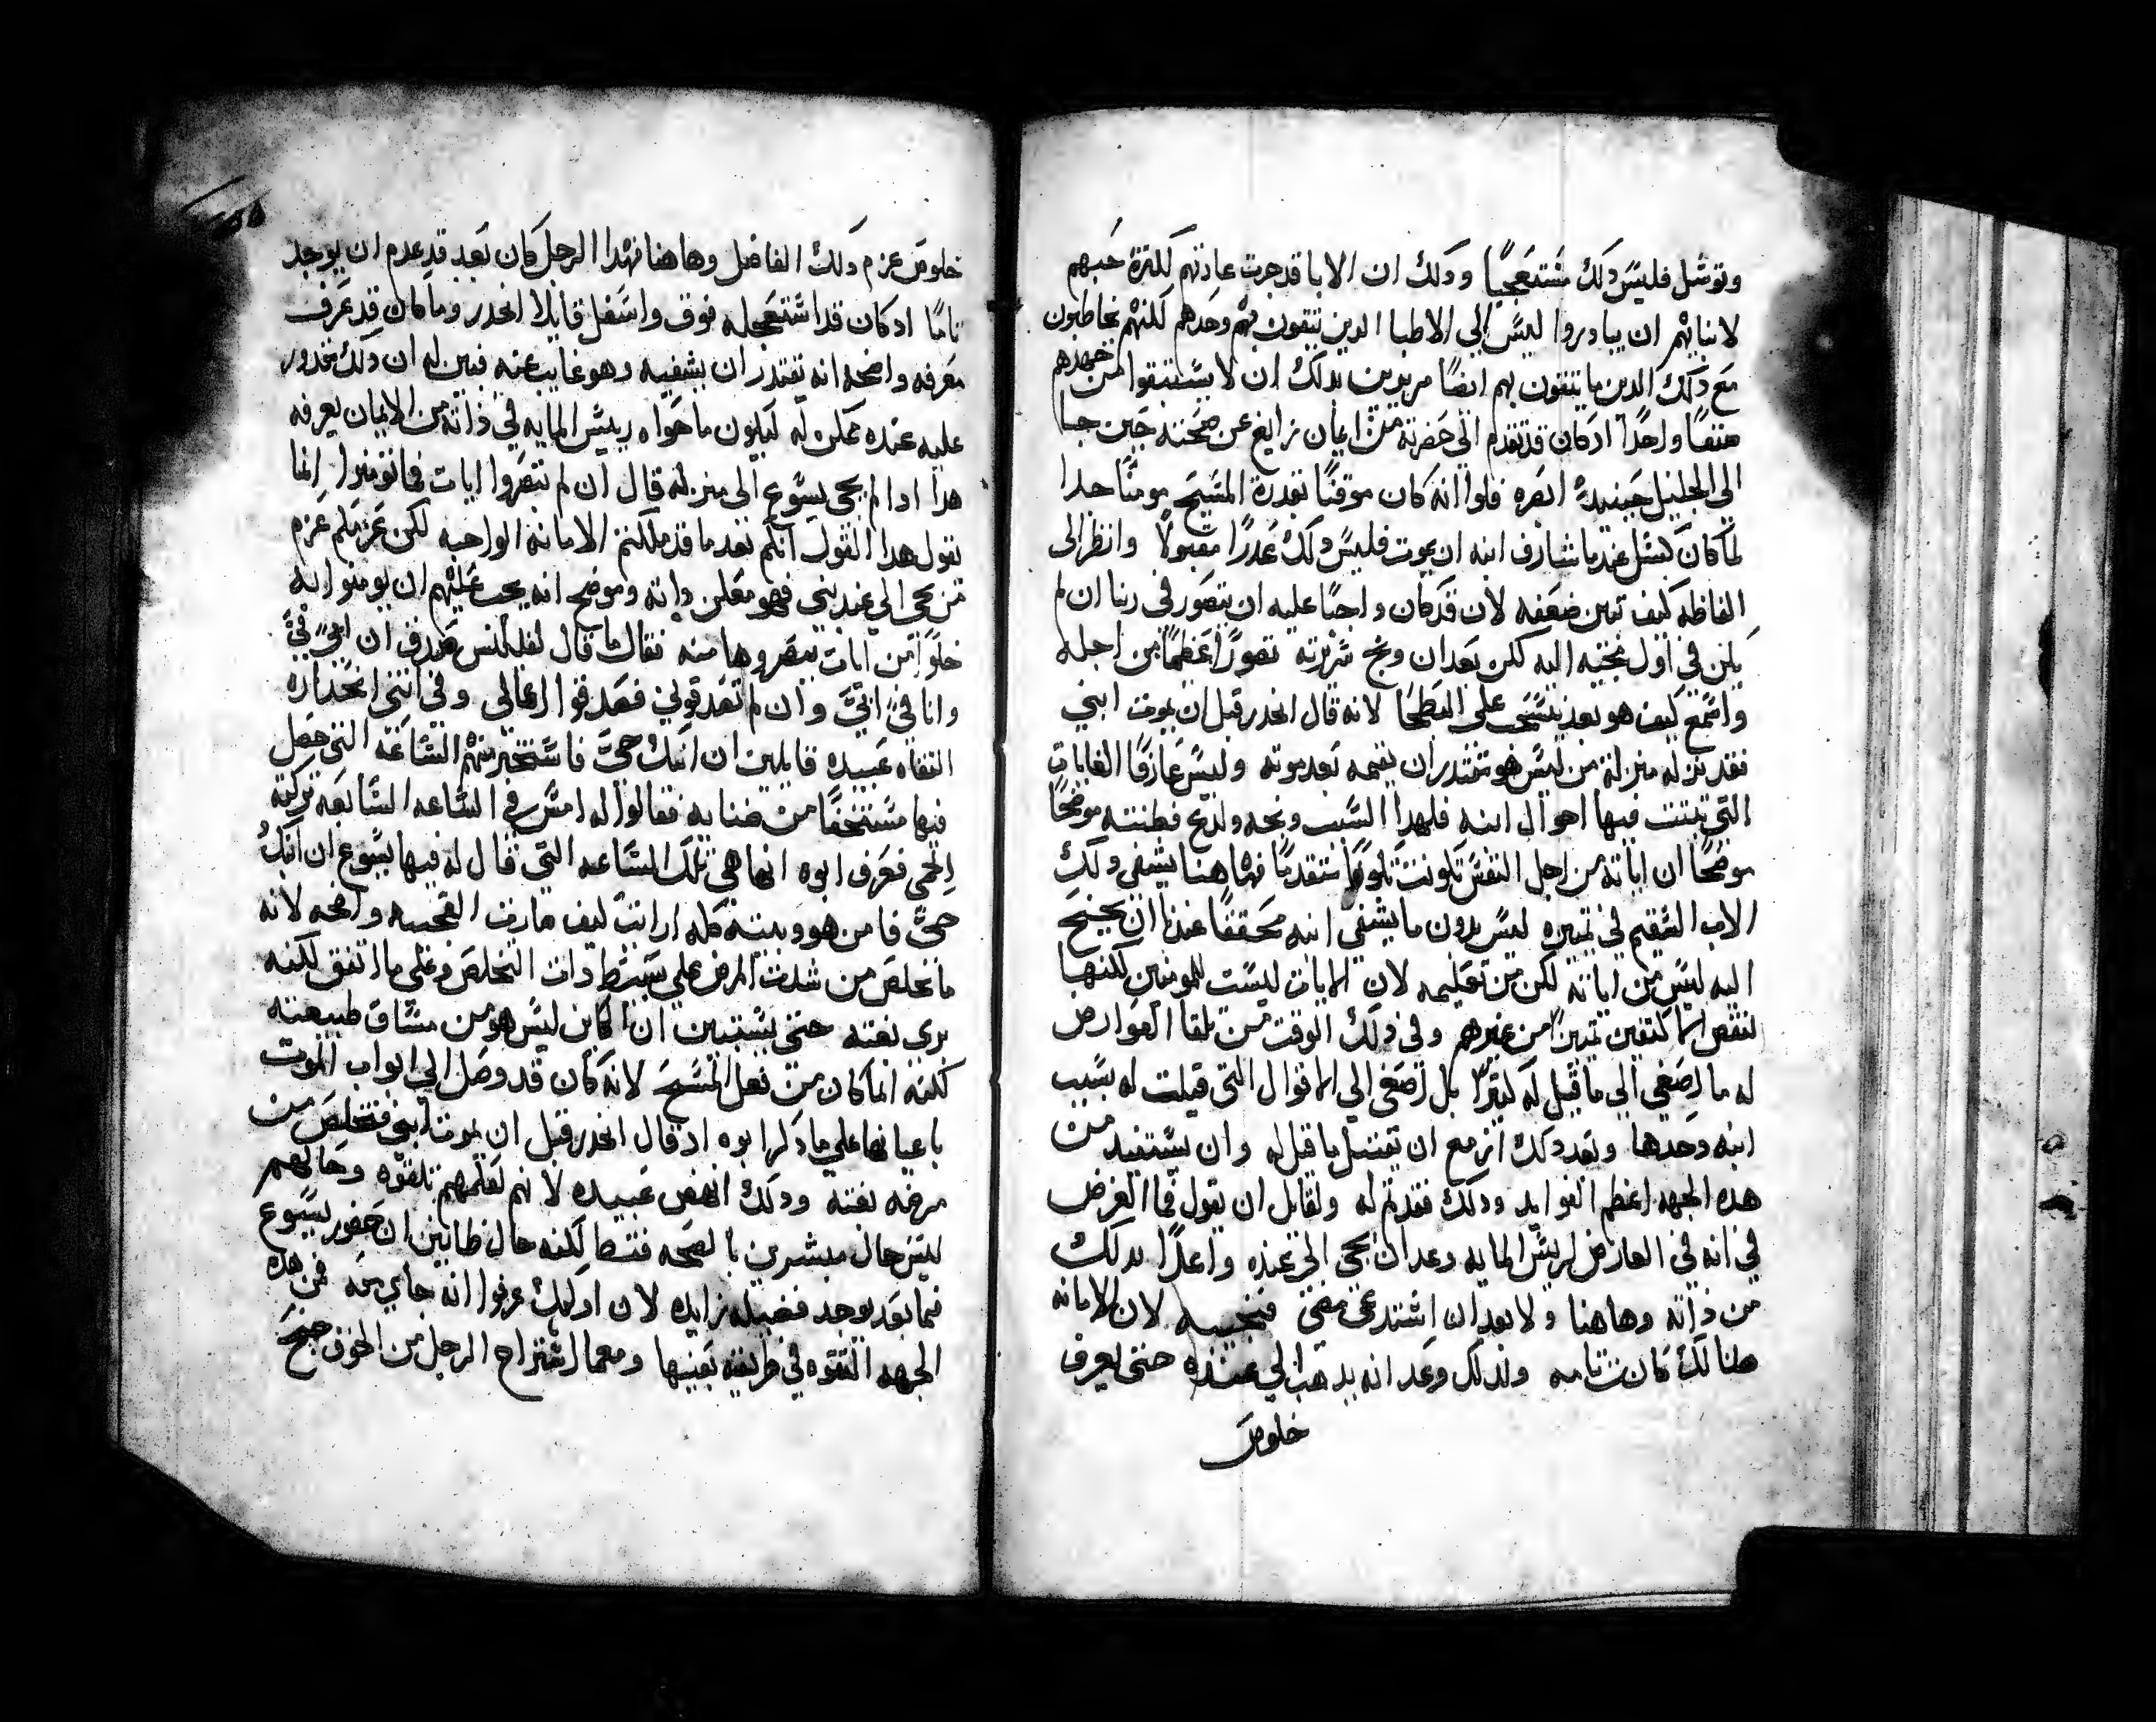 وتوسل فليس دلك مستعجبًا ودلك ان الابا قد جرت عادتهم لكترة حبهم
لابنايهم ان يبادروا ليس الي الاطبا الدين يتقون بهم وحدهم لكنهم يخاطبون
مع دلك الدين ما يتقون بهم ايضًا مريدين بدلك ان لا يستبقوا من جهدهم
صنفًا واحدًا ادكان قد تقدم الي حضرته من ايمان زايغ عن صحته حين جا
الي الجليل حينيدٍ ابصره فلوا انه كان موقنًا بقدرة المسيح مومنًا جدا
لما كان كسل عندما شارف ابنه ان يموت فليس دلك عدرًا مقبولًا وانظر الى
الفاظه كيف تبين ضعفه لان قد كان واجبًا عليه ان يتصور في ربنا ان لم
يكن في اول مجيه اليه لكن بعد ان وبخ سريرته تصورًا عظيمًا من اجله
واسمع كيف هو بعد ينسحب على البطحا لانه قال انحدر قبل ان يموت ابني
فقد نزله منزلة من ليس هو مقتدر ان يقيمه بعد موته وليس عارفًا الغايات
التي تبتت فيها احوال ابنه فلهدا السبب وبخه ولدع فطنته موضحًا
موضحًا ان اياته من اجل النفس تكونت تكونًا متقدمًا فهاهنا يشفي دلك
الاب السقيم في تمييزه ليس بدون ما يشفي ابنه محققًا عندنا ان نجنح
اليه ليس من اياته لكن من تعليمه لان الايات ليست للمومنين لكنها
لنقص المكتفين تمييزًا من غيرهم وفي دلك الوقت من تلقا العوارض
له ما اصغي الي ما قيل له كتيرًا بل اصغي الي الاقوال التي قيلت له بسبب
ابنه وحدها وبعد دلك ازمع ان يقتبل ما قيل له وان يستفيد من
هده الجهه اعظم الفوايد ودلك فقد تم له ولقايل ان يقول فما الغرض
في انه في العارض لريس المايه وعد ان يجي الي عنده واعدًا بدلك
من داته وهاهنا ولا بعد ان استدعي مضى فنجيبه لان الامانه
هنالك كانت تامه ولدلك وعد انه يدهب الي عنده حتى يعرف
خلوص
خلوص عزم دلك الفاضل وهاهنا فهدا الرجل كان بعد قد عدم ان يوجد
تامًا ادكان قد استعجله فوق واسفل قايلًا انحدر وما كان قد عرف
معرفه واضحه انه يقتدر ان يشفيه وهو غايب عنه فبين له ان دلك مقدور
عليه عنده ممكن له ليكون ما حواه ريس المايه في داته من الايمان يعرفه
هدا ادا لم يجي يسوع الى منزله قال ان لم تبصروا ايات فما تومنوا انما
نقول هدا القول انكم بعد ما قد ملكتم الامانه الواجبه لكن عزمكم عزم
من يجي الي عند نبي فهو معلن داته وموضح انه يجب عليهم ان يومنوا به
خلوًا من ايات يبصروها منه فقال ما قال لفيلبس صدق ان ابي فيَّ
وانا في ابي وان لم تصدقوني فصدقوا اعمالي وفي اتني انحداره
التقاه عبيده قايلين ان ابنك حيَّ فاستخبر منهم الساعه التي حصل
فيها مستخفًا من ضنا به فقالوا له امس في الساعه السابعه تركته
الحمى فعرف ابوه انها هي تلك الساعه التي قال له فيها يسوع ان ابنك
حيَّ فامن هو وبيته كله ارايت كيف صارت العجيبه واضحه لانه
ما تخلص من شدت المرض علي بسيط دات التخلص وعلى ما اتفق لكنه
برى بغته حتى يستبين ان الكاين ليس هو من مساق طبيعته
لكنه انما كان من فعل المسيح لانه كان قد وصل الي ابواب الموت
باعيانها علي ما دكر ابوه اد قال انحدر قبل ان يموت ابني فتخلص من
مرضه بغته ودلك انهض عبيده لانهم لعلمهم تلقوه وحالهم
ليس حال مبشرين بالصحه فقط لكنه حال ظانين ان حضور يسوع
فيما بعد يوجد فضيله زايده لان اوليك عرفوا انه جاي معه فمن هده
الجهه التقوه في طريقه بعينها ومعما استراح الرجل من الخوف جنح